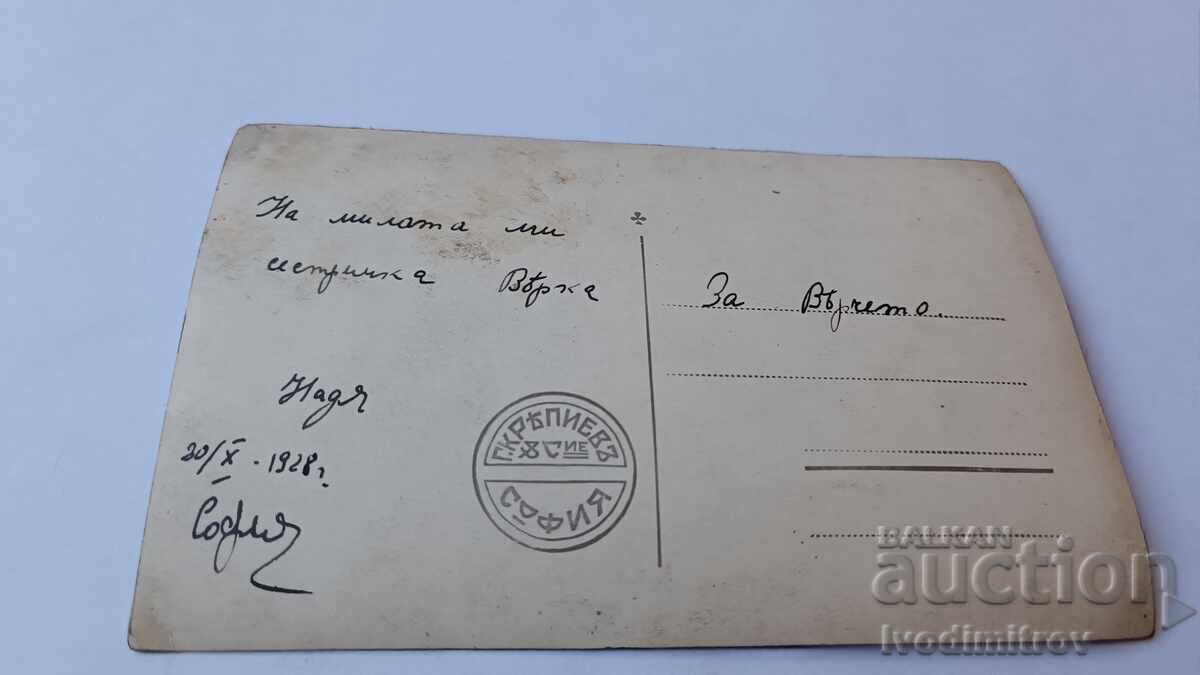 На милата ми
сестричка Вѣрка
Надя
20/X - 1928 г.
София
Г. КРѢПИЕВЪ
СИЕ
СОФИЯ
За Вѣрчето.
BALKAN
auction
Ivodimitrov